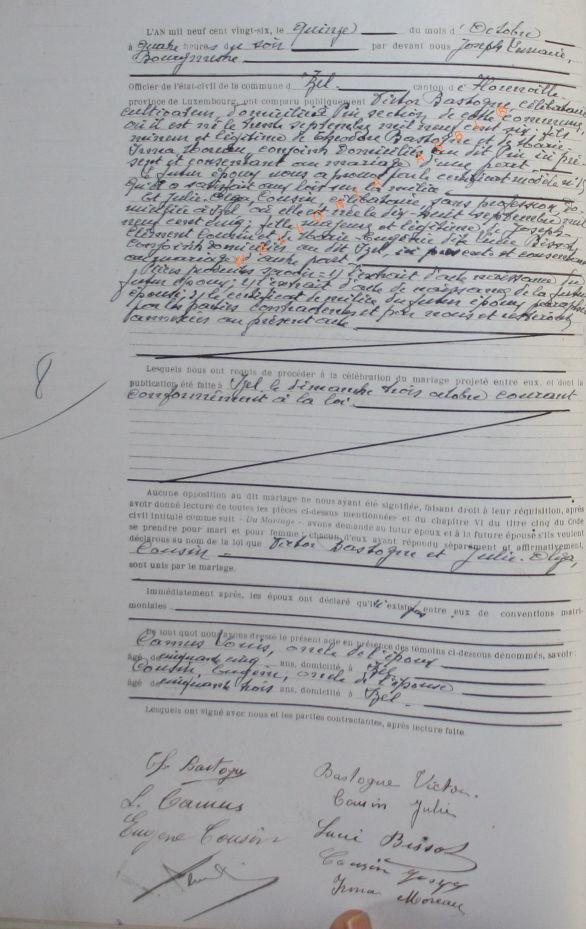 L'AN mil neuf cent vingt-six, le quinze du mois d'Octobre
à quatre heures du soir par devant nous Joseph
Bourgmestre
Officier de l'état-civil de la commune d'Izel canton de Florenville
province de Luxembourg, ont comparu publiquement Victor Bastogne, célibataire
cultivateur, domicilié section de cette commune
où il est né le trente septembre mil neuf cent six, fils
mineur et légitime de Bastogne et de Marie-
Irma Moreau, conjoints domiciliés au dit ici pré-
sent et consentant au mariage d'une part
Le futur époux nous a prouvé par le certificat modèle n°
qu'il a satisfait aux lois sur la milice
Et Julie-Olga, Cousin, célibataire, sans profession, do-
miciliée à Izel où elle est née le dix-huit septembre mil
neuf cent cinq, fille majeure et légitime de Joseph-
Clément Cousin et de Marie- dite Lucie Bissot,
conjoints domiciliés au dit Izel, ici présents et consentant
au mariage d'autre part
Pièces produites savoir: 1) l'extrait d'acte naissance du
futur époux; 2) l'extrait d'acte de naissance de la future
épouse; 3) le certificat de milice du futur époux, paraphés
par les parties contractantes et par nous et resteront
annexées au présent acte
8
Lesquels nous ont requis de procéder à la célébration du mariage projeté entre eux, et dont la
publication été faite à Izel le dimanche trois octobre courant
conformément à la loi.
Aucune opposition au dit mariage ne nous ayant été signifiée, faisant droit à leur réquisition, après
avoir donné lecture de toutes les pièces ci-dessus mentionnées et du chapitre VI du titre cinq du Code
civil intitulé comme suit - Du Mariage - avons demandé au futur époux et à la future épouse s'ils veulent
se prendre pour mari et pour femme; chacun d'eux ayant répondu séparément et affirmativement,
déclarons au nom de la loi que Victor Bastogne et Julie-Olga,
Cousin
sont unis par le mariage.
Immédiatement après, les époux ont déclaré qu'il n'existe pas entre eux de conventions matri-
moniales
De tout quoi nous avons dressé le présent acte en présence des témoins ci-dessous dénommés, savoir:
Camus Louis, oncle de l'époux
âgé de cinquante cinq ans, domicilié à Izel
Cousin, Eugène, oncle de l'épouse
âgé de cinquante trois ans, domicilié à Izel.
Lesquels ont signé avec nous et les parties contractantes, après lecture faite
Bastogne Bastogne Victor.
L. Camus Cousin Julie
Eugène Cousin Lucie Bissot
Cousin
Irma Moreau